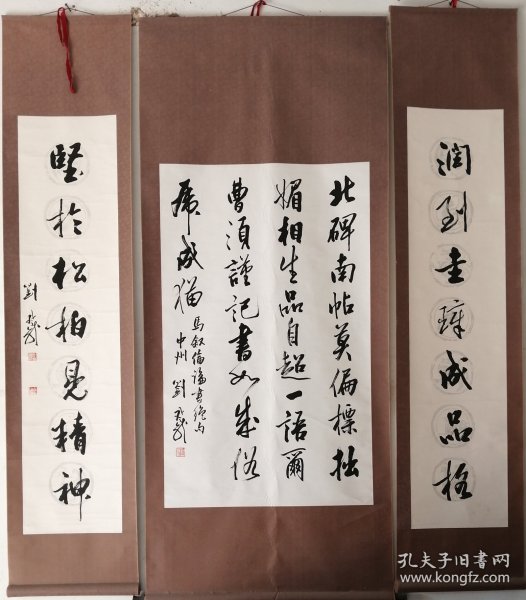 润到圭璋成品格
北碑南帖莫偏標拙
媚相生品自超一語爾
曹須謹記書如成俗
虎成猫
馬叙倫論書絶句
中州 劉
堅於松柏見精神
劉
孔夫子旧书网
www.kongfz.com